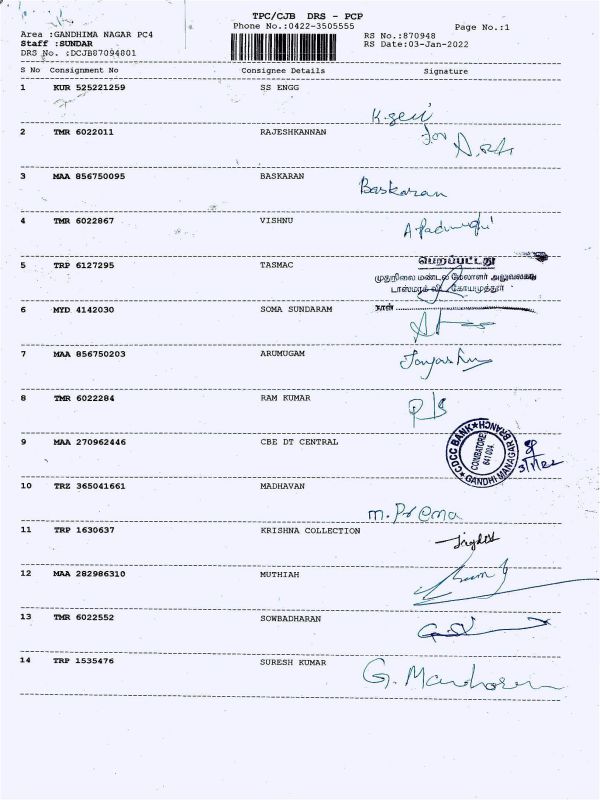 TPC/CJB DRS - PCP
Phone No.:0422-3505555
Page No.:1
Area :GANDHIMA NAGAR PC4
RS No.:870948
Staff :SUNDAR
RS Date:03-Jan-2022
DRS No. :DCJB87094801
S No Consignment No Consignee Details Signature
1 KUR 525221259 SS ENGG
2 TMR 6022011 RAJESHKANNAN
for
3 MAA 856750095 BASKARAN
Baskaran
4 TMR 6022867 VISHNU
பெறப்பட்டது
5 TRP 6127295 TASMAC
முதுநிலை மண்டல மேலாளர் அலுவலகம்
டாஸ்மாக் கோயமுத்தூர்
நாள்
6 MYD 4142030 SOMA SUNDARAM
7 MAA 856750203 ARUMUGAM
8 TMR 6022284 RAM KUMAR
9 MAA 270962446 CBE DT CENTRAL
CDCC BANK
GANDHI MANAGAR BRANCH
COIMBATORE
641 004.
3/1/22
10 TRZ 365041661 MADHAVAN
m. Prema
11 TRP 1630637 KRISHNA COLLECTION
12 MAA 282986310 MUTHIAH
13 TMR 6022552 SOWBADHARAN
14 TRP 1535476 SURESH KUMAR